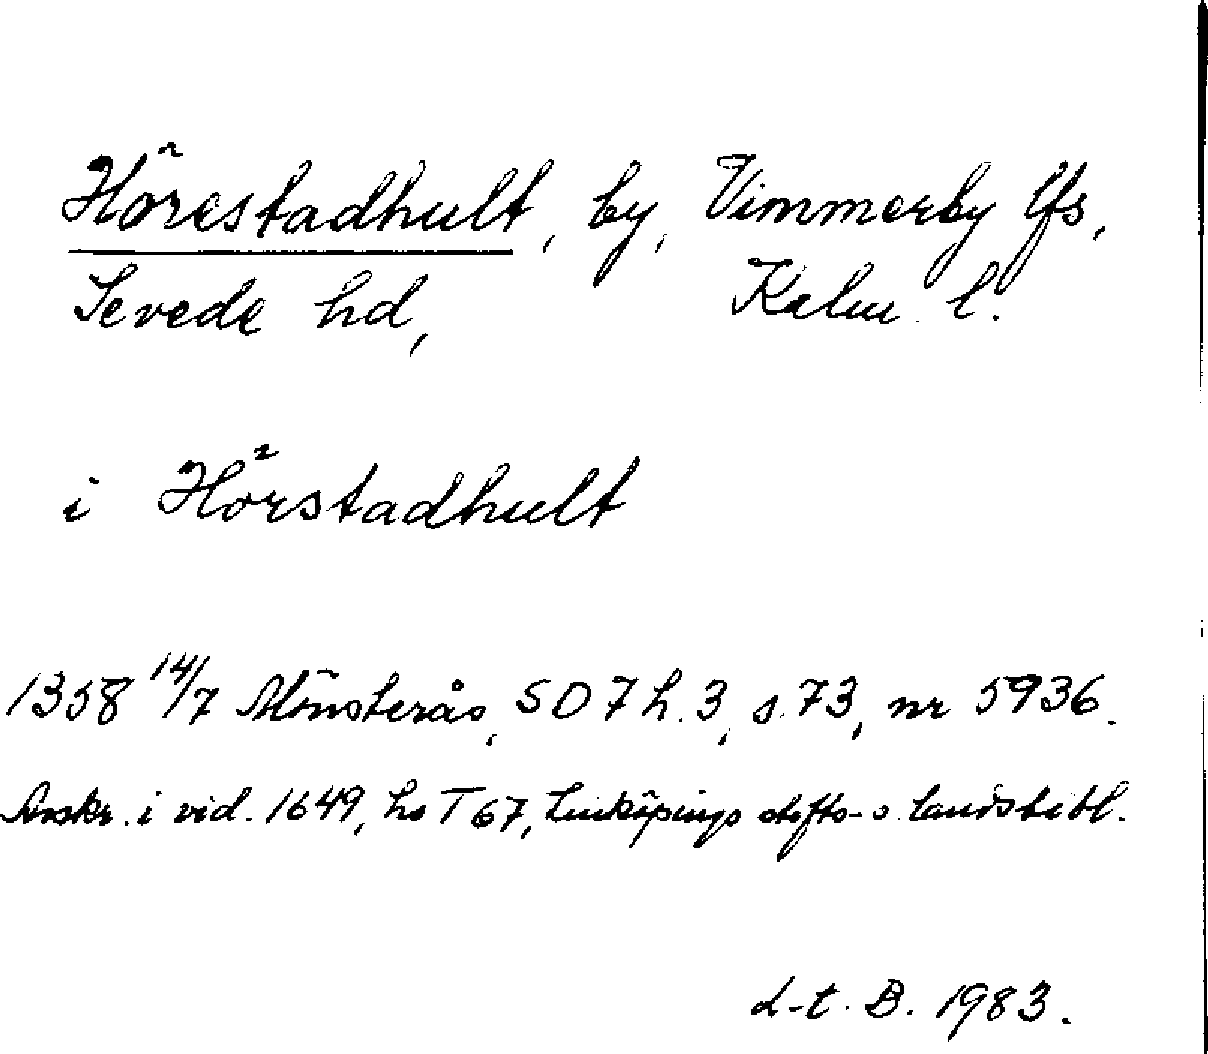 Hörestadhult, by, Vimmerby lfs,
Sevede hd, Kalm. l.
i Hörstadhult
1358 14/7 Mönsterås, SD 7 h. 3, s. 73, nr 5936.
Avskr. i vid. 1649, hs T 67, Linköpings stifts- o. landsbibl.
L-t. B. 1983.